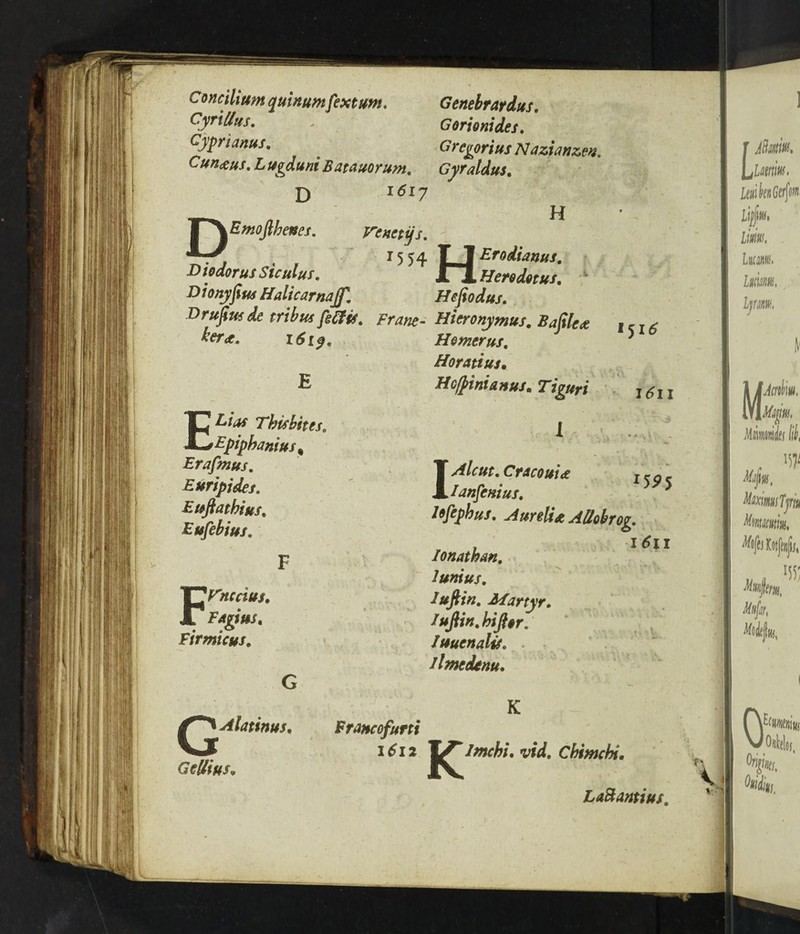 Concilium quinum sextum.
Cyrillus.
Cyprianus.
Cunæus. Lugduni Batauorum.
1617
D
DEmosthenes. Venetijs.
1554
Diodorus Siculus.
Dionysius Halicarnass.
Drusius de tribus sectis. Frane-
keræ. 1619.
E
ELias Thisbites.
Epiphanius.
Erasmus.
Euripides.
Eustathius.
Eusebius.
F
FVnccius.
Fagius.
Firmicus.
G
GAlatinus. Francofurti
1612
Gellius.
Genebrardus.
Gorionides.
Gregorius Nazianzen.
Gyraldus.
H
HErodianus.
Herodotus.
Hesiodus.
Hieronymus. Basileæ 1516
Homerus.
Horatius.
Hospinianus. Tiguri 1611
I
IAlcut. Cracouiæ 1595
Iansenius.
Iosephus. Aureliæ Allobrog.
1611
Ionathan.
Iunius.
Iustin. Martyr.
Iustin. histor.
Iuuenalis.
Ilmedenu.
K
KImchi. vid. Chimchi.
Lactantius.
LActantius.
Laertius.
Leui ben Gersom
Lipsius.
Liuius.
Lucanus.
Lucianus.
Lyranus.
MAcrobius.
Magius.
Maimonides lib.
157
Masius.
Maximus Tyriu
Montacutius.
Moses Kotsensis.
155
Munsterus.
Musar.
Modestus.
OEcumenius
Onkelos.
Origines.
Ouidius.